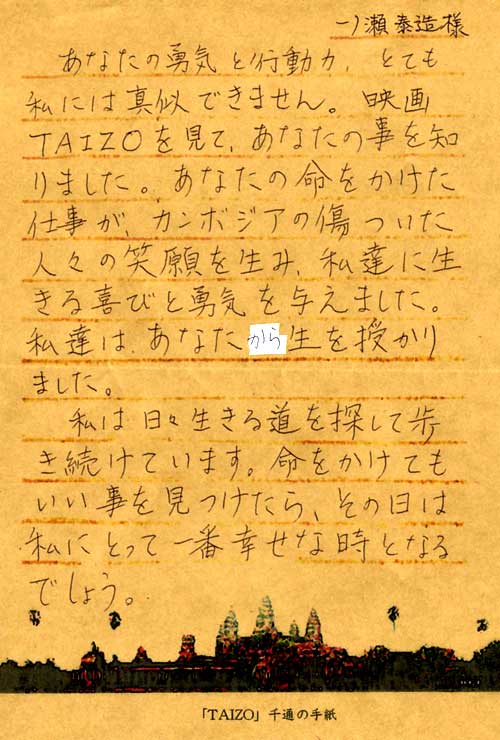 一ノ瀬泰造様
あなたの勇気と行動力、とても
私には真似できません。映画
TAIZOを見て、あなたの事を知
りました。あなたの命をかけた
仕事が、カンボジアの傷ついた
人々の笑顔を生み、私達に生
きる喜びと勇気を与えました。
私達は、あなたから生を授かり
ました。
私は日々生きる道を探して歩
き続けています。命をかけても
いい事を見つけたら、その日は
私にとって一番幸せな時となる
でしょう。
「TAIZO」千通の手紙